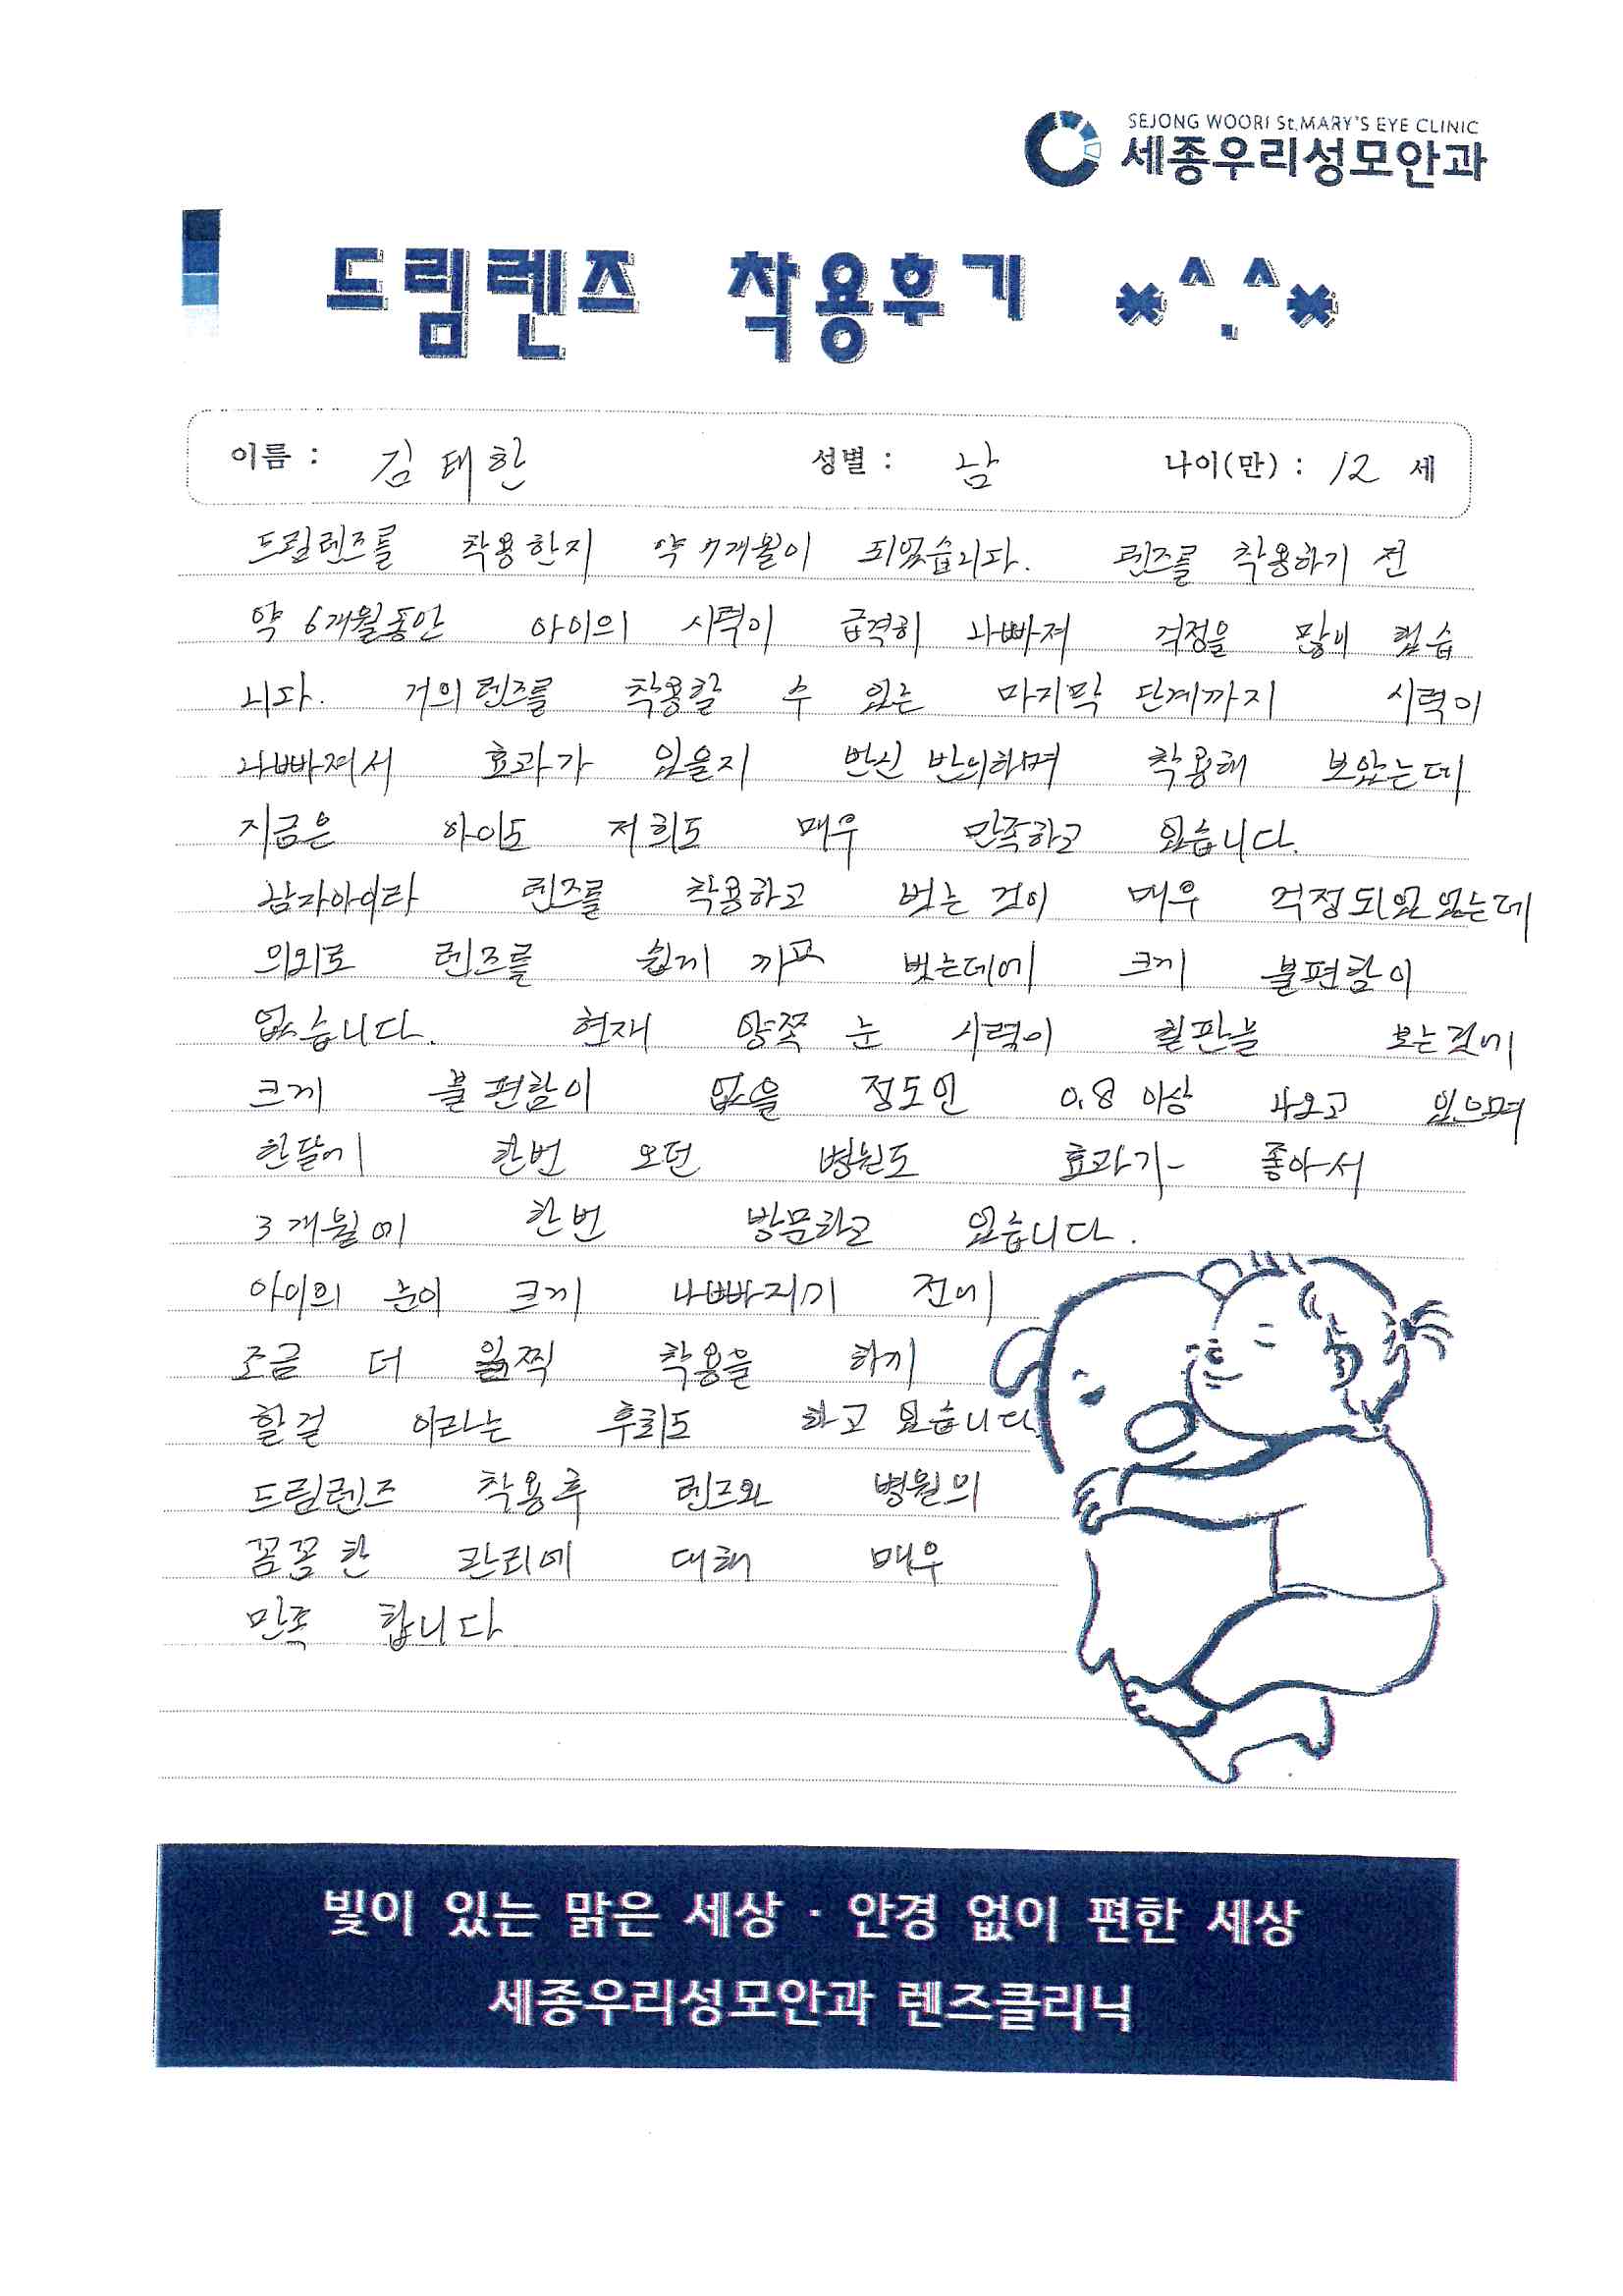 SEJONG WOORI St.MARY'S EYE CLINIC
세종우리성모안과
드림렌즈 착용후기 *^.^*
이름 : 김태한 성별 : 남 나이(만) : 12 세
드림렌즈를 착용한지 약 7개월이 되었습니다. 렌즈를 착용하기 전
약 6개월동안 아이의 시력이 급격히 나빠져 걱정을 많이 했습
니다. 거의 렌즈를 착용할 수 있는 마지막 단계까지 시력이
나빠져서 효과가 있을지 반신 반의하며 착용해 보았는데
지금은 아이도 저희도 매우 만족하고 있습니다.
남자아이라 렌즈를 착용하고 벗는 것이 매우 걱정되었었는데
의외로 렌즈를 쉽게 끼고 벗는데에 크게 불편함이
없습니다. 현재 양쪽 눈 시력이 칠판을 보는것에
크게 불편함이 없을 정도인 0.8 이상 나오고 있으며
한달에 한번 오던 병원도 효과가 좋아서
3개월에 한번 방문하고 있습니다.
아이의 눈이 크게 나빠지기 전에
조금 더 일찍 착용을 하게
할걸 이라는 후회도 하고 있습니다.
드림렌즈 착용후 렌즈와 병원의
꼼꼼한 관리에 대해 매우
만족 합니다
빛이 있는 맑은 세상 · 안경 없이 편한 세상
세종우리성모안과 렌즈클리닉